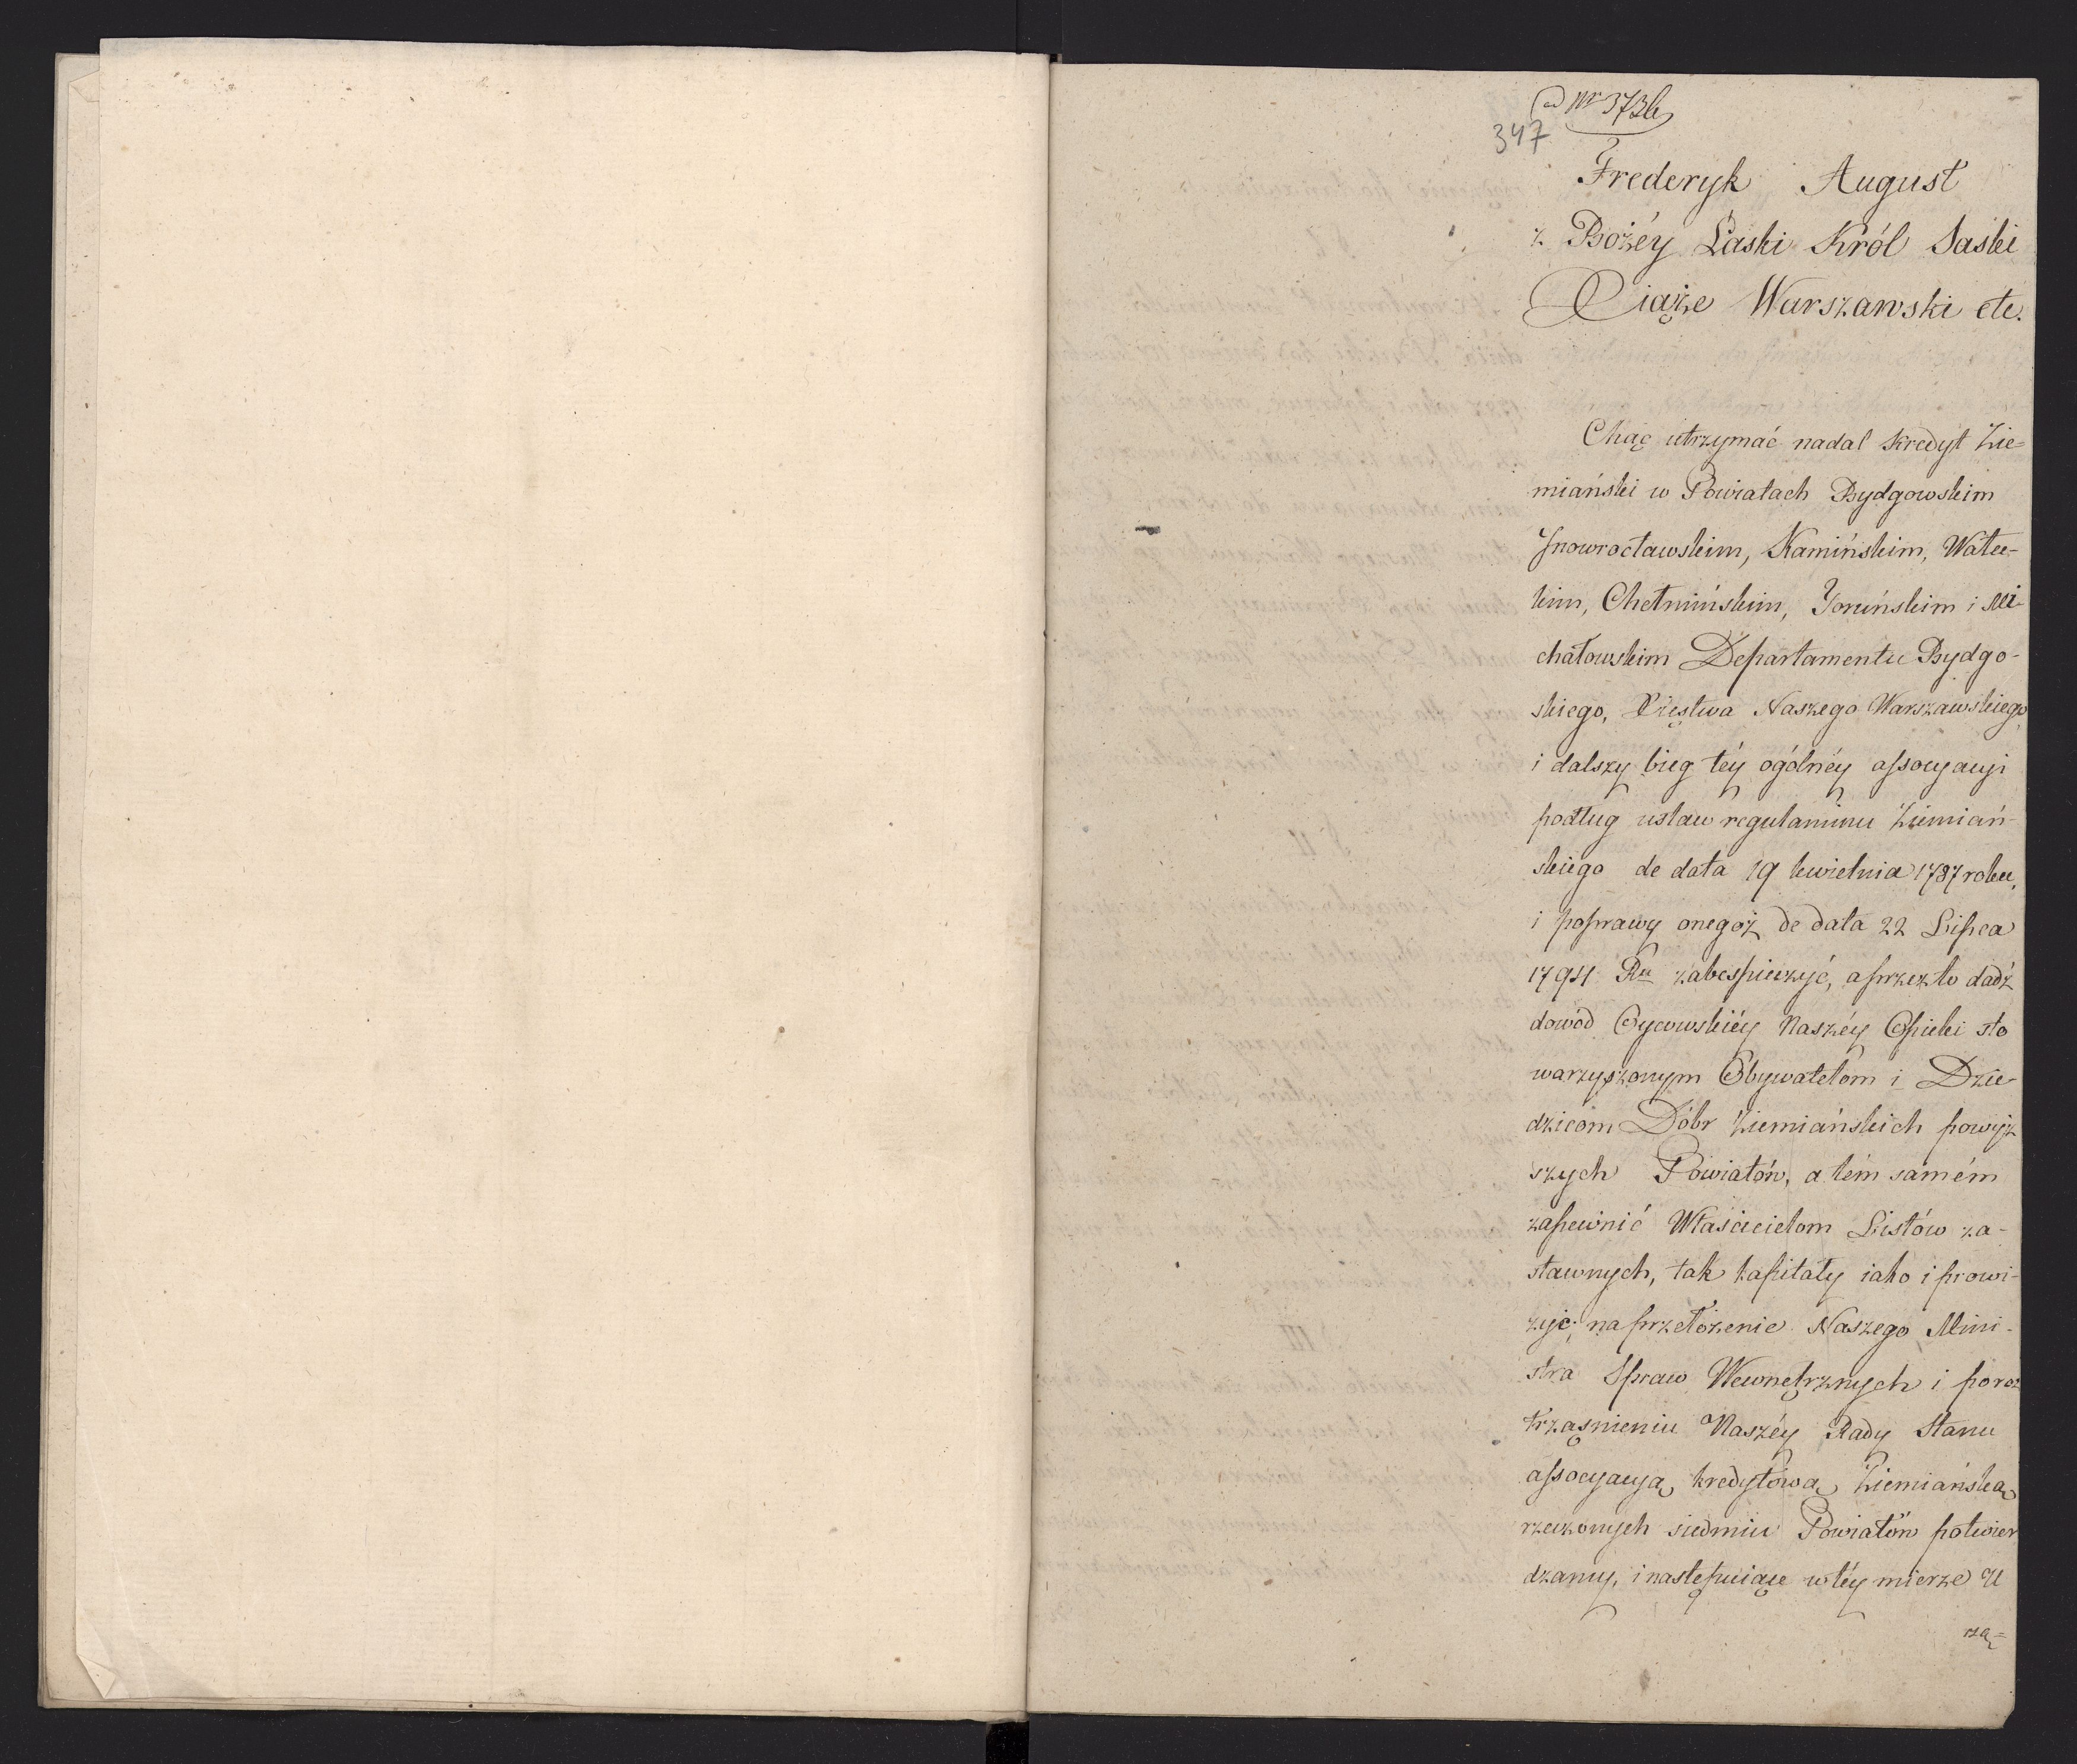 ad Nr 3736
347
Frederyk August
z Bożéy Łaski Król Saski
Xiąże Warszawski etc.
Chąc utrzymać nadal kredyt Zie=
miański w Powiatach Bydgowskim
Jnowrocławskim, Kamińskim, Wałec-
kim, Chełmińskim, Toruńskim i Mi-
chałowskim Departamentu Bydgo-
skiego, Xięstwa Naszego Warszawskiego,
i dalszy bieg téy ogólnéy assocyacyi
podług ustaw regulaminu Ziemiań-
skiego de data 19 kwietnia 1787 roku,
i poprawy onegoż de data 22 Lipca
1794 Ru zabespieczyć, a przez to dadź
dowód Oycowskiéy Naszéy Opieki sto
warzyszonym Obywatelom i Dzie-
dzicom Dóbr Ziemiańskich powyż
szych Powiatów, a tém samém
zapewnić Właścicielom Listów za-
stawnych, tak kapitały iako i prowi-
zyje; na przełożenie Naszego Mini-
stra Spraw Wewnętrznych i poroz
trząśnieniu Naszéy Rady Stanu
assocyacyą kredytową Ziemiańską
rzeczonych siedmiu Powiatów potwier
dzamy, i następuiące w téy mierze U
rzą=